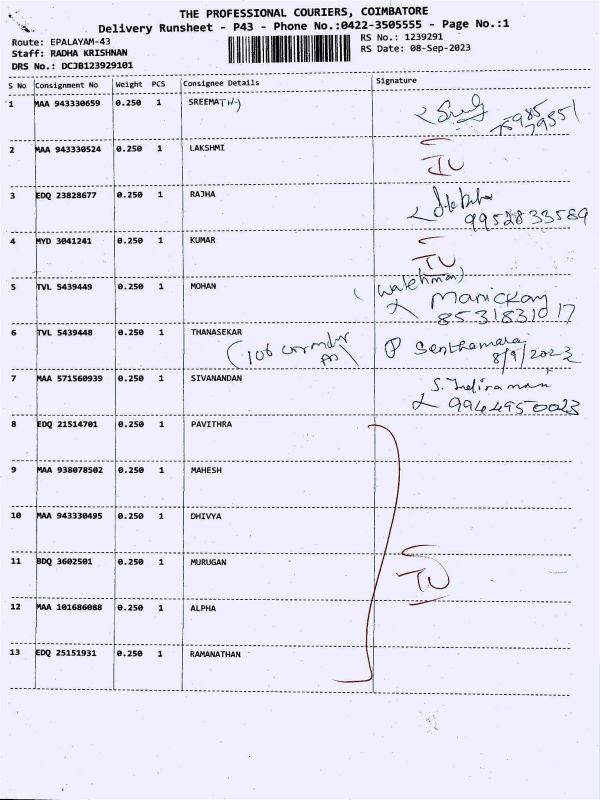 THE PROFESSIONAL COURIERS, COIMBATORE
Delivery Runsheet - P43 - Phone No.:0422-3505555 - Page No.:1
Route: EPALAYAM-43
Staff: RADHA KRISHNAN
DRS No.: DCJB123929101
RS No.: 1239291
RS Date: 08-Sep-2023
S No Consignment No Weight PCS Consignee Details Signature
1 MAA 943330659 0.250 1 SREEMATHI
2 MAA 943330524 0.250 1 LAKSHMI
3 EDQ 23828677 0.250 1 RAJHA
9952833589
4 MYD 3041241 0.250 1 KUMAR
(Watchman)
5 TVL 5439449 0.250 1 MOHAN Manickam
8531831017
6 TVL 5439448 0.250 1 THANASEKAR
(106 Senthamarai
8/9/2023
7 MAA 571560939 0.250 1 SIVANANDAN S. Indiramani
9944950023
8 EDQ 21514701 0.250 1 PAVITHRA
9 MAA 938078502 0.250 1 MAHESH
10 MAA 943330495 0.250 1 DHIVYA
11 BDQ 3602501 0.250 1 MURUGAN
12 MAA 101686088 0.250 1 ALPHA
13 EDQ 25151931 0.250 1 RAMANATHAN